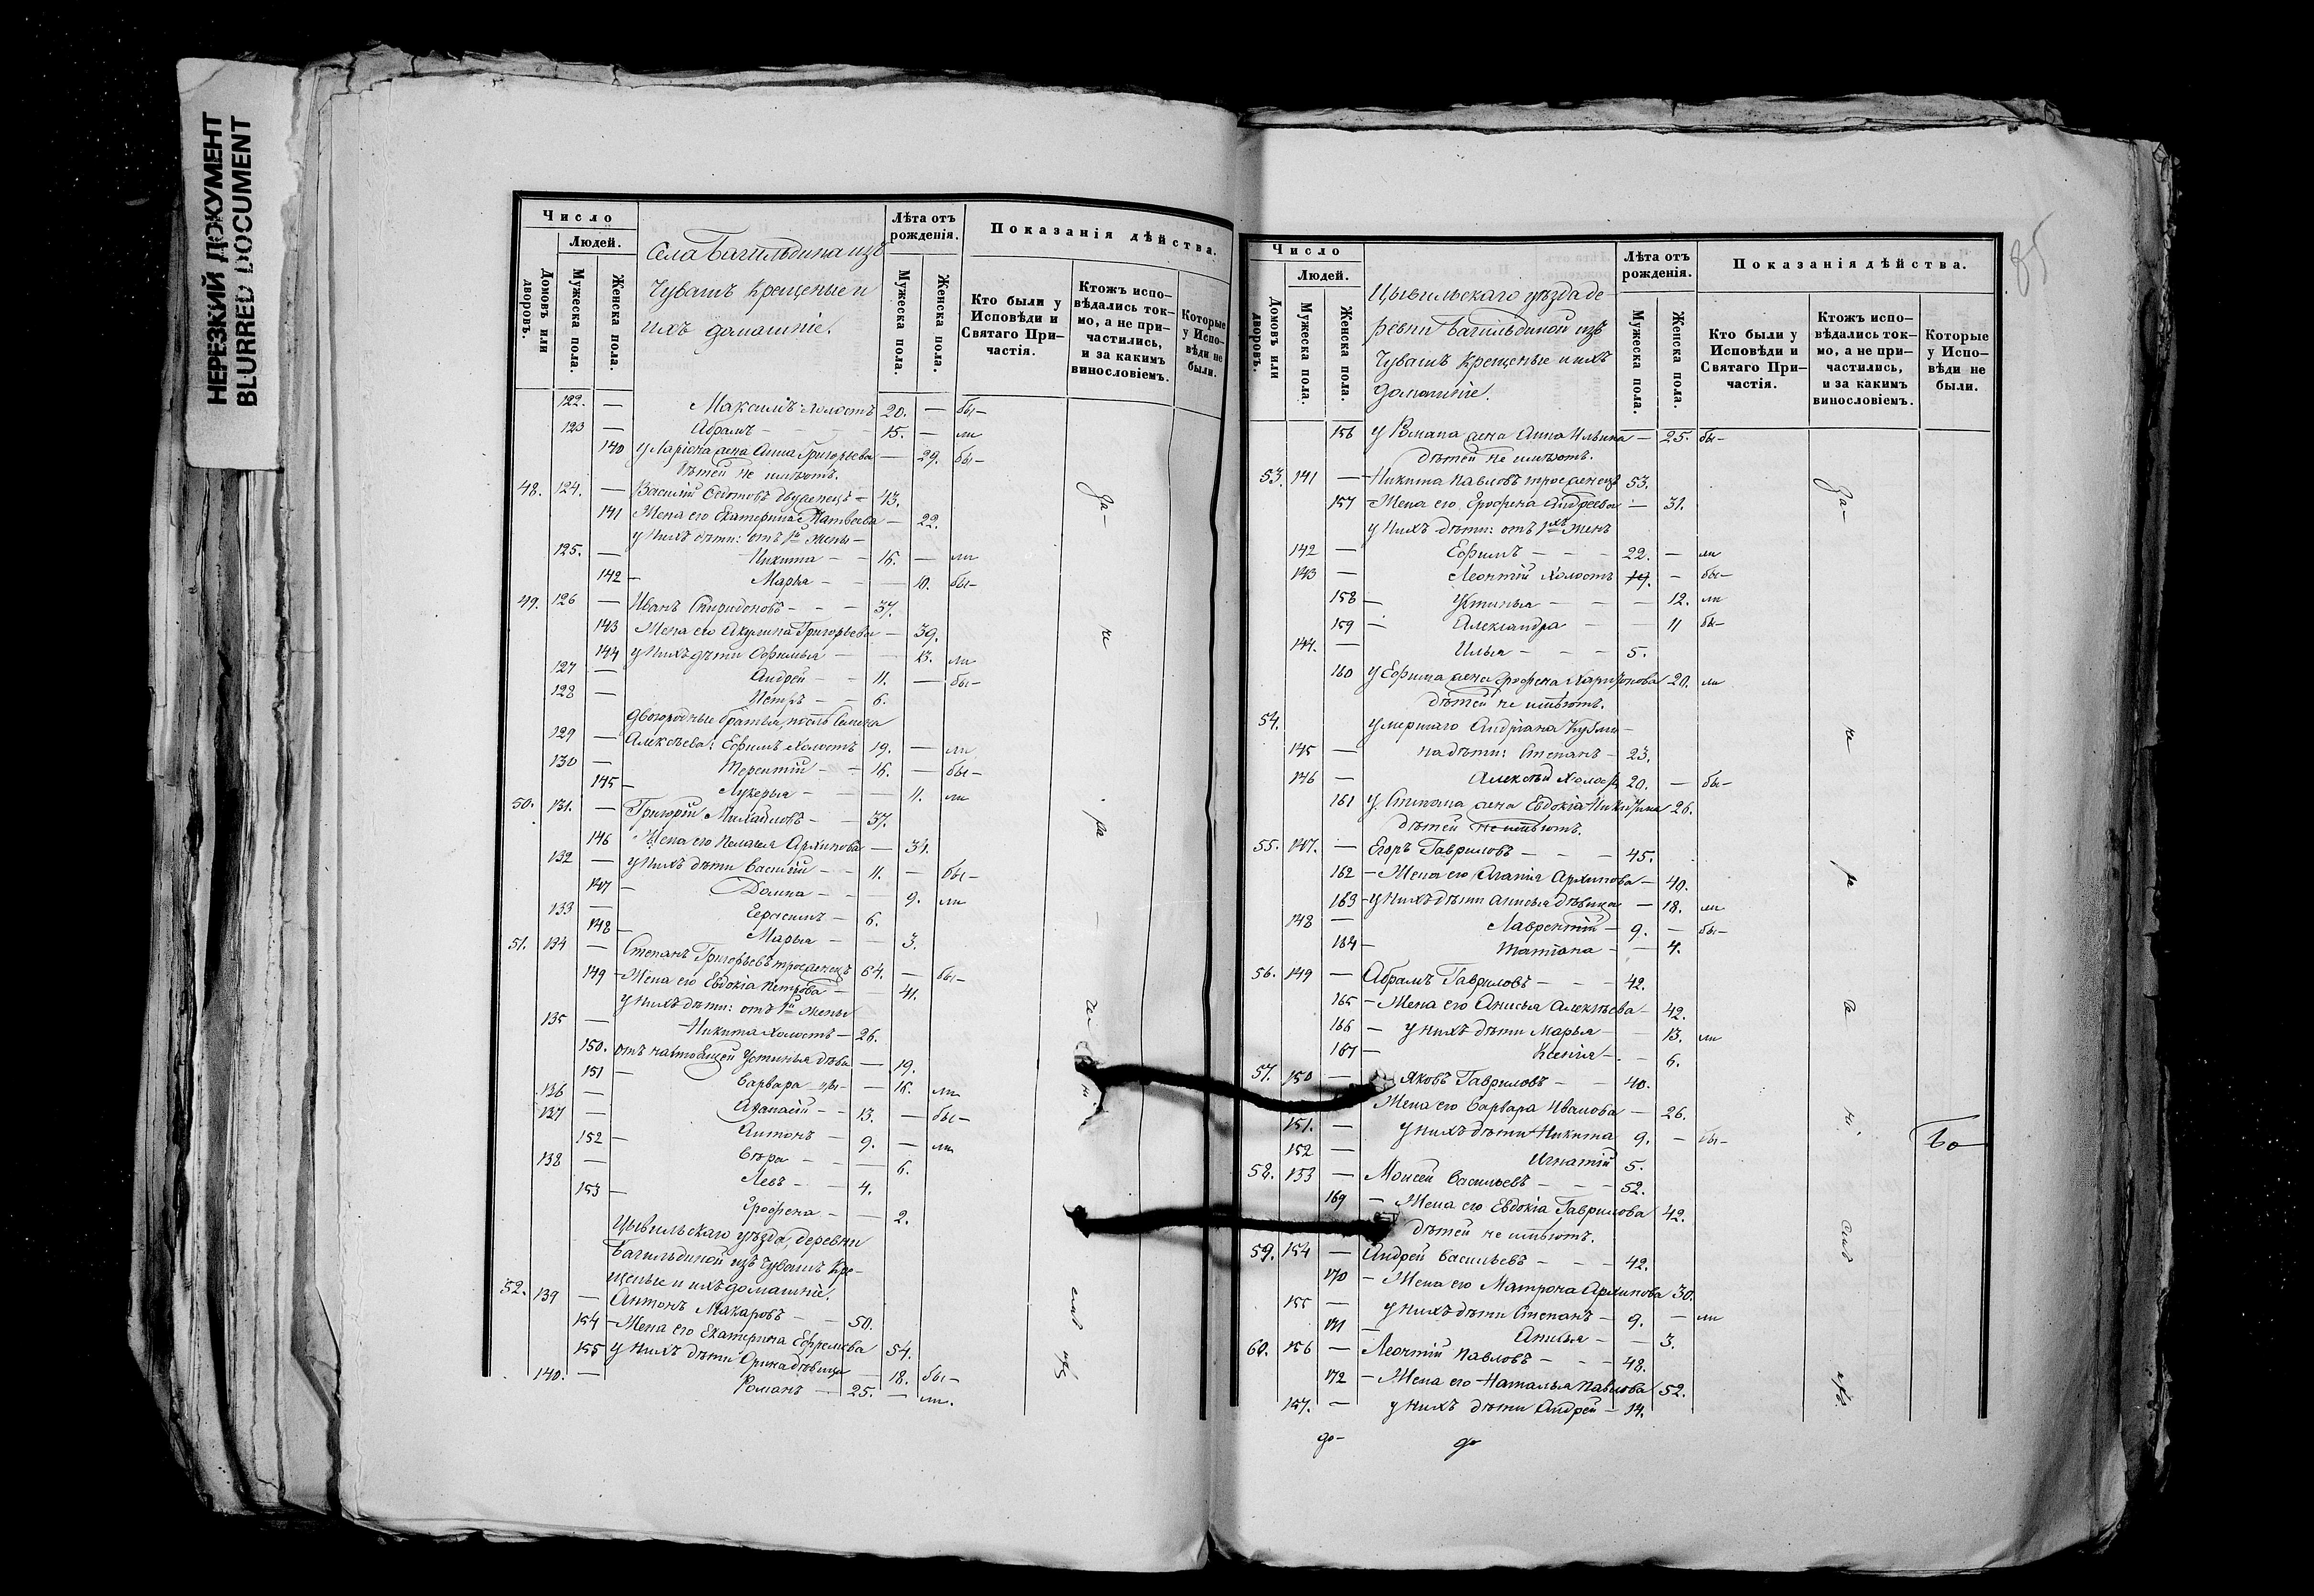 НЕРЕЗКИЙ ДОКУМЕНТ
BLURRED DOCUMENT
Число
Людей.
Домовъ или дворовъ.
Мужеска пола.
Женска пола.
Села Багильдина изъ
Чувашъ крещеные и
ихъ домашніе.
Лѣта отъ рожденія.
Мужеска пола.
Женска пола.
Показанія дѣйства.
Кто были у Исповѣди и Святаго Причастія.
Ктожъ исповѣдались токмо, а не причастились, и за какимъ винословіемъ.
Которые у Исповѣди не были.
122. — Максимъ холостъ 20. — бы-
123 — Абрамъ - - - 15. — ли
140 у Ларіона жена Анна Григорьева — 29. бы-
дѣтей не имѣютъ.
48. 124. — Василій Ѳедотовъ двуженецъ - 43.
141 Жена его Екатерина Матвѣева — 22.
у нихъ дѣти: отъ 1й жены -
125. — Никита - - 15. — ли
142 — Марья - - — 10. бы-
49. 126 — Иванъ Спиридоновъ - - - 37.
143 Жена его Акулина Григорьева — 39.
144 у нихъ дѣти Офимья — 13. ли
127 — Андрей - - 11. — бы-
128 — Петръ - - 6.
двоюродные братья, послѣ Семена
129 — Алексѣева: Ефимъ холостъ 19. — ли
130 — Терентій - - 15. — бы-
145 — Лукерья - - — 11. ли
50. 131. — Григорій Михайловъ - - 37.
146 Жена его Пелагея Архипова — 31.
132 — у нихъ дѣти Василій - - 11. — бы-
147 — Домна - - — 9. ли
133 — Герасимъ - 6.
148 — Марья - — 3.
51. 134 — Степанъ Григорьевъ троеженецъ 64. — бы-
149 — Жена его Евдокія Петрова — 41.
у нихъ дѣти: отъ 1й жены
135 — Никита холостъ - 26.
150. отъ настоящей Устинья дѣвка — 19.
151 — Варвара — 15. ли
136 — Афанасій - - 13. — бы-
137 — Антонъ - 9. — ли
152 — Вѣра - - — 6.
138 — Левъ - - 4.
153 — Ерофена - — 2.
Цывильскаго уѣзда, деревни
Багильдиной изъ Чувашъ Кре-
щеные и ихъ домашніе.
52. 139 — Антонъ Макаровъ - - 50.
154 — Жена его Екатерина Ефремова 54.
155 у нихъ дѣти Орина дѣвица — 18. бы-
140. — Романъ - 25. — ли.
За-
не
ра
слав
85
Число
Людей.
Домовъ или дворовъ.
Мужеска пола.
Женска пола.
Цывильскаго уѣзда де-
ревни Багильдиной изъ
Чувашъ Крещеные и ихъ
домашніе.
Лѣта отъ рожденія.
Мужеска пола.
Женска пола.
Показанія дѣйства.
Кто были у Исповѣди и Святаго Причастія.
Ктожъ исповѣдались токмо, а не причастились, и за какимъ винословіемъ.
Которые у Исповѣди не были.
156 у Романа жена Анна Ильина — 25. бы-
дѣтей не имѣютъ.
53. 141 — Никита Павловъ троеженецъ 53.
157 — Жена его Ерофена Андреева — 31.
у нихъ дѣти: отъ 1хъ женъ
142 — Ефимъ - - - 22. — ли
143 — Леонтій холостъ 19. - бы-
158 — Устинья - - — 12. ли
159 — Александра - — 11 бы-
144. — Илья - - - 5.
160 у Ефима жена Ерофена Харитонова 20. ли
дѣтей не имѣютъ.
54. умершаго Андріана Кузми-
145 — на дѣти: Степанъ - 23.
146 — Алексѣй холостъ 20. - бы-
161 у Степана жена Евдокія Никитина 26.
дѣтей не имѣютъ.
55. 147. — Егоръ Гавриловъ - - - 45.
162 — Жена его Агапія Архипова — 40.
163 — у нихъ дѣти Анисья дѣвица — 18. ли
148 — Лаврентій - 9. — бы-
164 — Татіана - — 4.
56. 149 — Абрамъ Гавриловъ - - - 42.
165 — Жена его Анисья Алексѣева — 42.
166 — у нихъ дѣти Марья - — 13. ли
167 — Ксенія - - 6.
57. 150 — Яковъ Гавриловъ - - 40.
Жена его Варвара Иванова — 26.
151. — у нихъ дѣти Никита 9. — бы-
152 — Игнатій 5.
58. 153 — Моисей Васильевъ - - - 52.
169 — Жена его Евдокія Гаврилова 42.
дѣтей не имѣютъ.
59. 154 — Андрей Васильевъ - - - 42.
170 — Жена его Матрона Архипова 30.
155 — у нихъ дѣти Степанъ - 9. — ли
171 — Анисья - — 3.
60. 156 — Леонтій Павловъ - - - 48.
172 — Жена его Наталья Павлова 52.
157. — у нихъ дѣти Андрей - 14.
За-
не
ра
слав
до- до